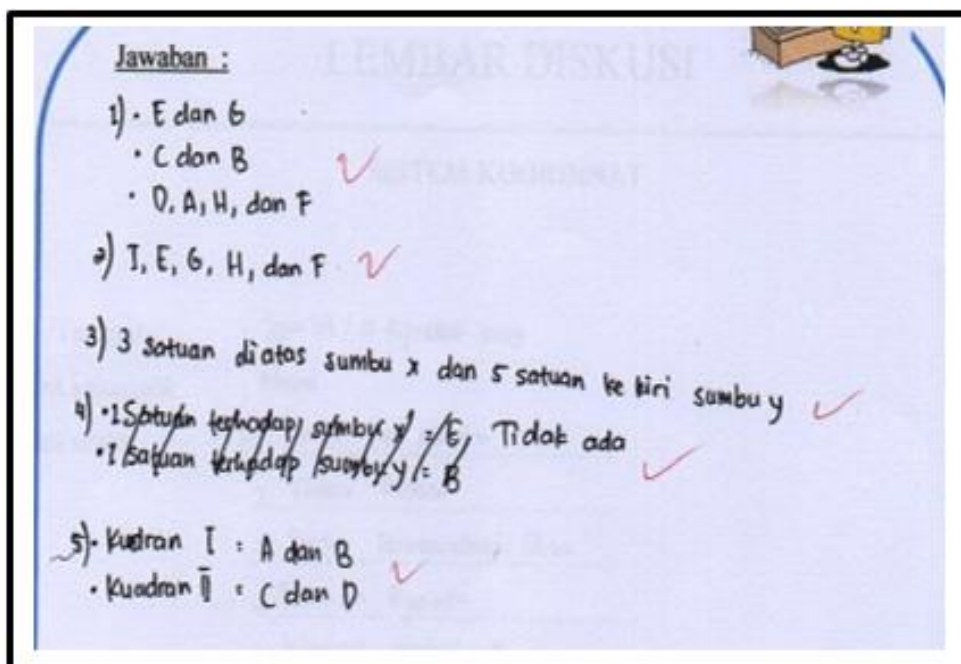 Jawaban :
1) • E dan G
• C dan B
• D, A, H, dan F
2) I, E, G, H, dan F
3) 3 Satuan diatas sumbu x dan 5 satuan ke kiri sumbu y
4) • 1 Satuan terhadap sumbu x = E, Tidak ada
• 1 satuan terhadap sumbu y = B
5) • Kudran I = A dan B
• Kuadran II = C dan D
LEMBAR DISKUSI
SISTEM KOORDINAT